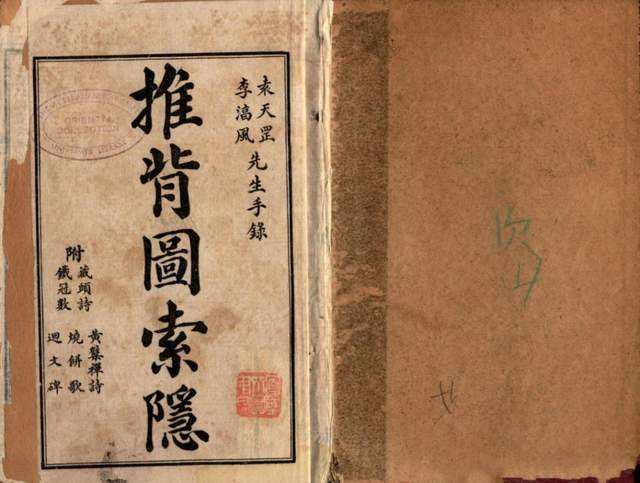 袁天罡
李淳風
先生手錄
推背圖索隱
附
藏頭詩
鐵冠數
黃蘗禪詩
燒餅歌
迴文碑
ORIENTAL
COLLECTION